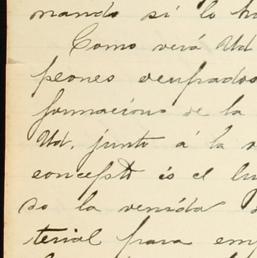 mando si lo h
Como verá Ud
peones ocupados
formacions de la
Ud. junto á la v
concepto is el lu
so la venida
terial para em